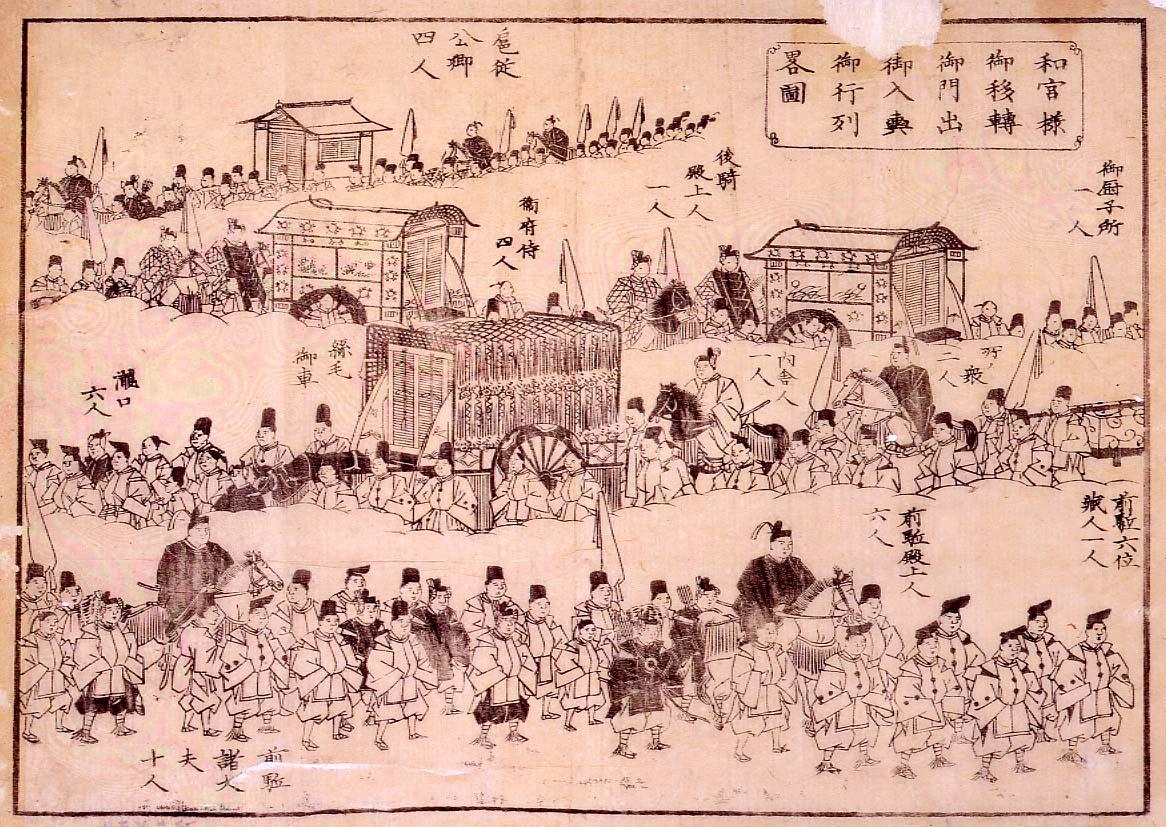 和宮様
御移轉
御門出
御入輿
御行列
畧圖
御厨子所
一人
後騎
殿上人
一人
衞府侍
四人
扈從
公卿
四人
所ノ
衆
二人
内舎人
一人
絲毛
御車
瀧口
六人
前駈六位
蔵人一人
前駈殿上人
六人
前駈
諸大
夫
十人